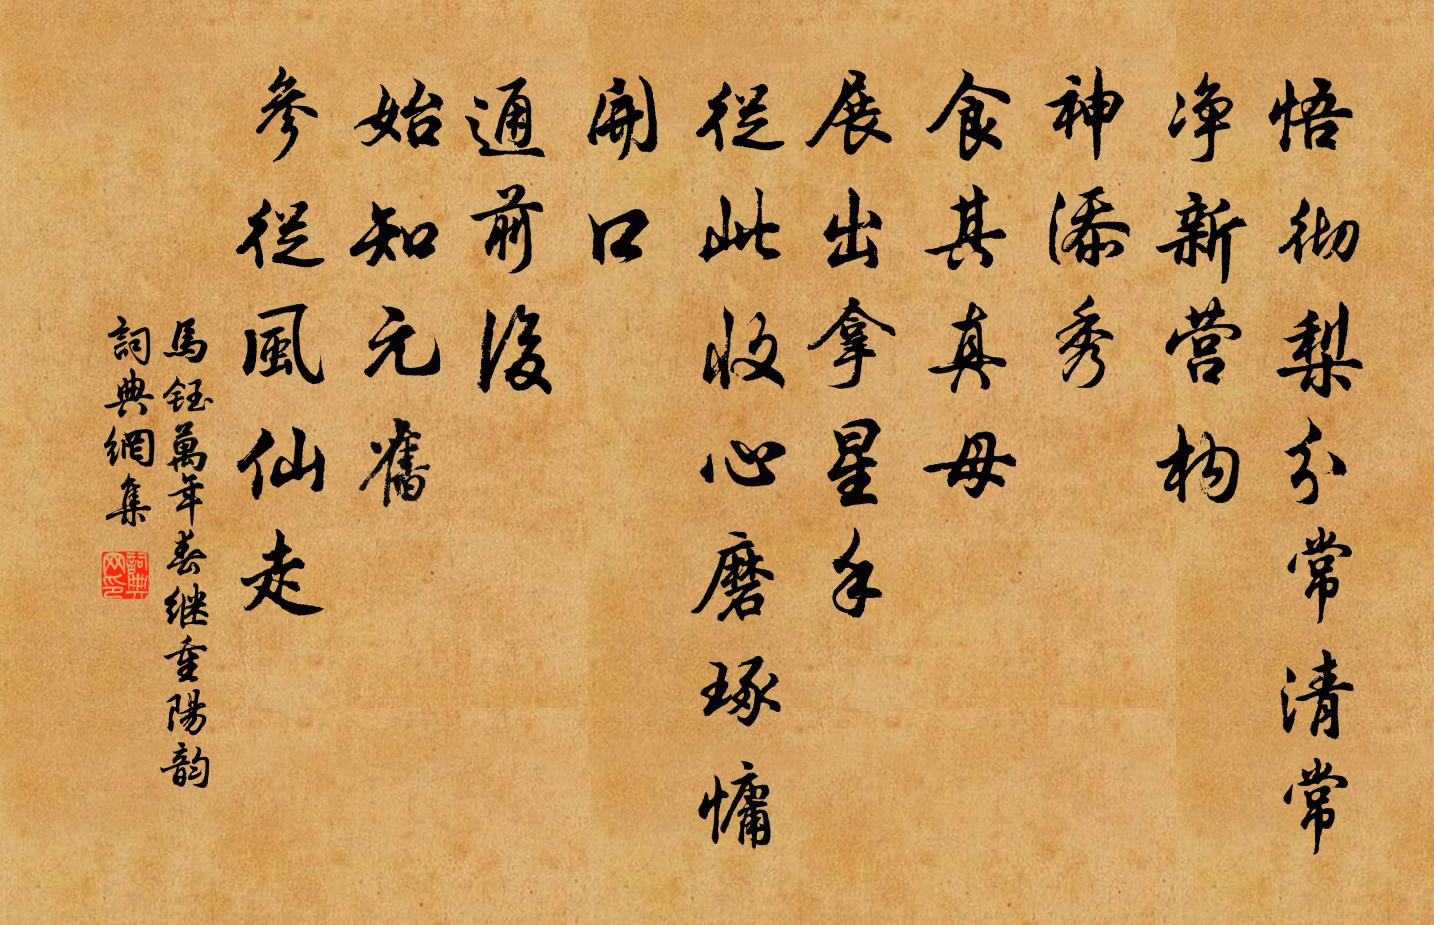 悟彻梨分常清常
净新营构
神添秀
食其真母
展出拿星手
從此收心磨琢慵
開口
通前後
始知元舊
參從風仙走
馬鈺萬年春继重陽韵
詞典網集
詞典網印